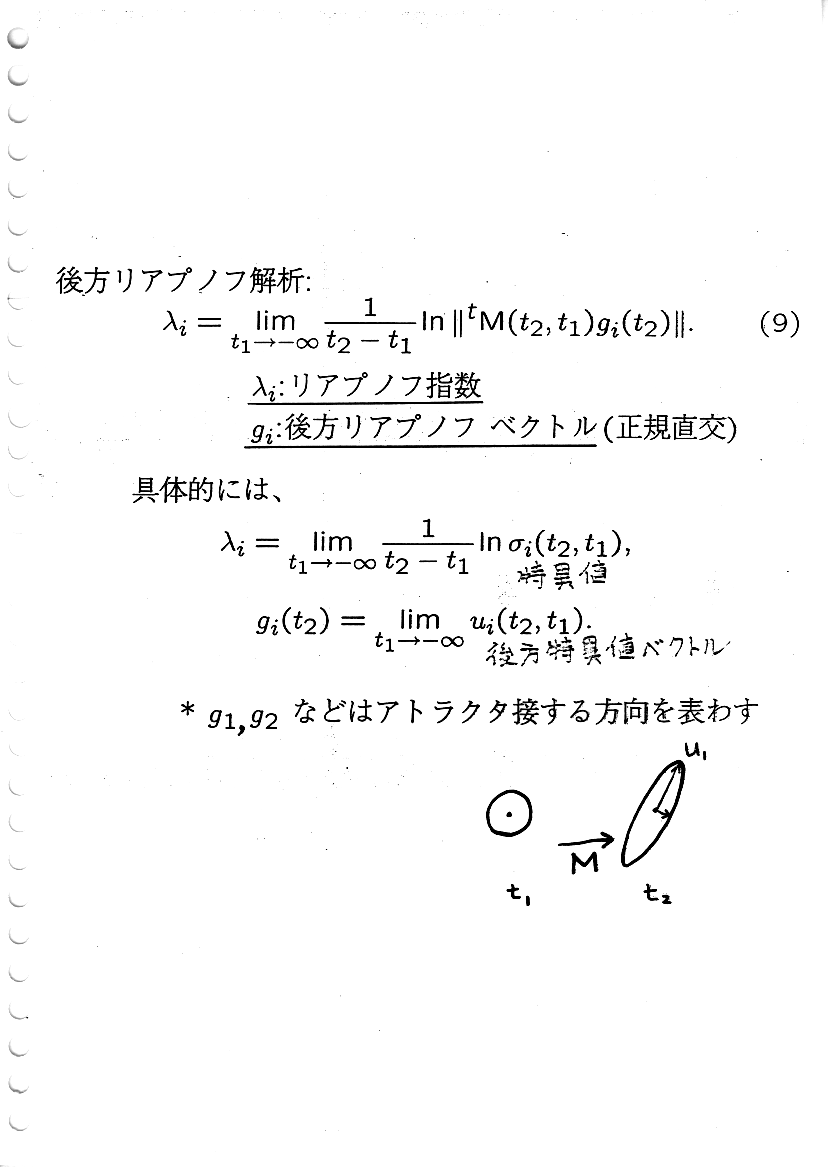 後方リアプノフ解析:
λ_i = lim_{t_1→−∞} 1/(t_2 − t_1) ln ‖^t M(t_2, t_1)g_i(t_2)‖. (9)
λ_i:リアプノフ指数
g_i:後方リアプノフ ベクトル(正規直交)
具体的には、
λ_i = lim_{t_1→−∞} 1/(t_2 − t_1) ln σ_i(t_2, t_1),
特異値
g_i(t_2) = lim_{t_1→−∞} u_i(t_2, t_1).
後方特異値ベクトル
* g_1,g_2 などはアトラクタ接する方向を表わす
u_1
M
t_1 t_2